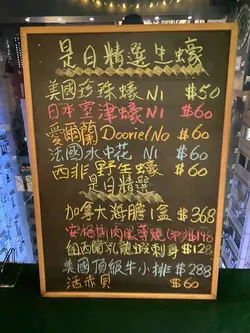 是日精選生蠔
美國珍珠蠔 N1 $50
日本室津蠔 N1 $60
愛爾蘭 Dooriel No $60
法國水中花 N1 $60
西非野生蠔 $60
是日精選
加拿大海膽1盒 $368
安格斯肉眼
紐西蘭 刺身 $128
美國頂級牛小排 $288
活赤貝 $60